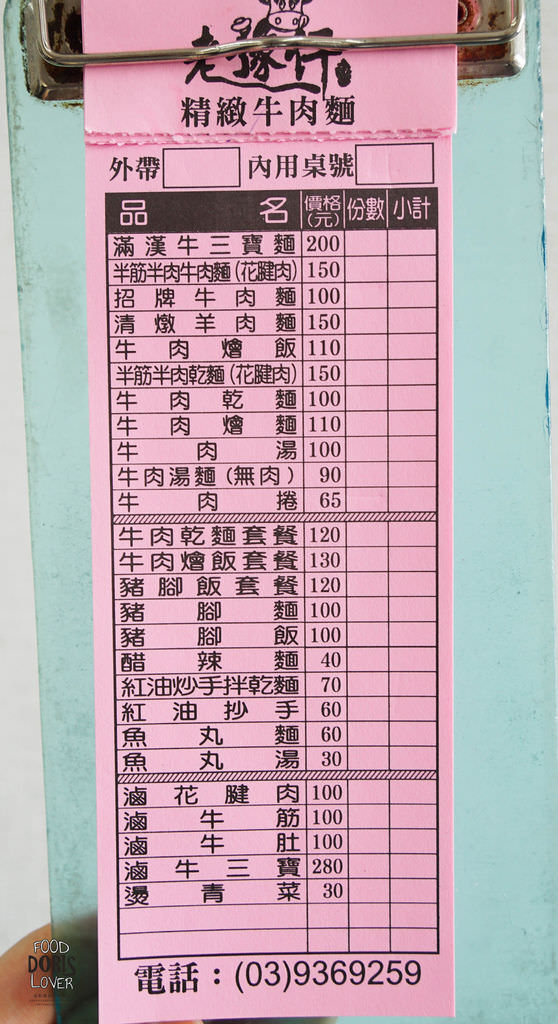 老豫仟
精緻牛肉麵
外帶 內用桌號
品名 價格(元) 份數 小計
滿漢牛三寶麵 200
半筋半肉牛肉麵(花腱肉) 150
招牌牛肉麵 100
清燉羊肉麵 150
牛肉燴飯 110
半筋半肉乾麵(花腱肉) 150
牛肉乾麵 100
牛肉燴麵 110
牛肉湯 100
牛肉湯麵(無肉) 90
牛肉捲 65
牛肉乾麵套餐 120
牛肉燴飯套餐 130
豬腳飯套餐 120
豬腳麵 100
豬腳飯 100
醋辣麵 40
紅油炒手拌乾麵 70
紅油抄手 60
魚丸麵 60
魚丸湯 30
滷花腱肉 100
滷牛筋 100
滷牛肚 100
滷牛三寶 280
燙青菜 30
電話：(03)9369259
FOOD
DORIS
LOVER